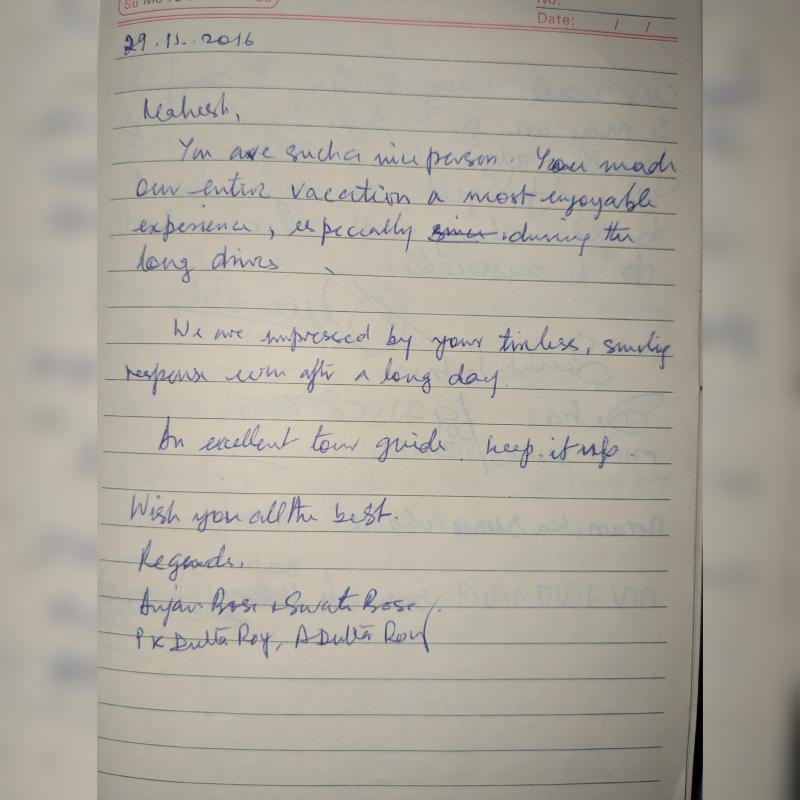 No:
Date: / /
29.11.2016
Mahesh,
You are such a nice person. You made
our entire vacation a most enjoyable
experience, especially during the
long drives
We are impressed by your tireless, smiling
response even after a long day.
An excellent tour guide. Keep it up.
Wish you all the best.
Regards,
Anjan Bose & Swati Bose
P K Dutta Roy, A Dutta Roy